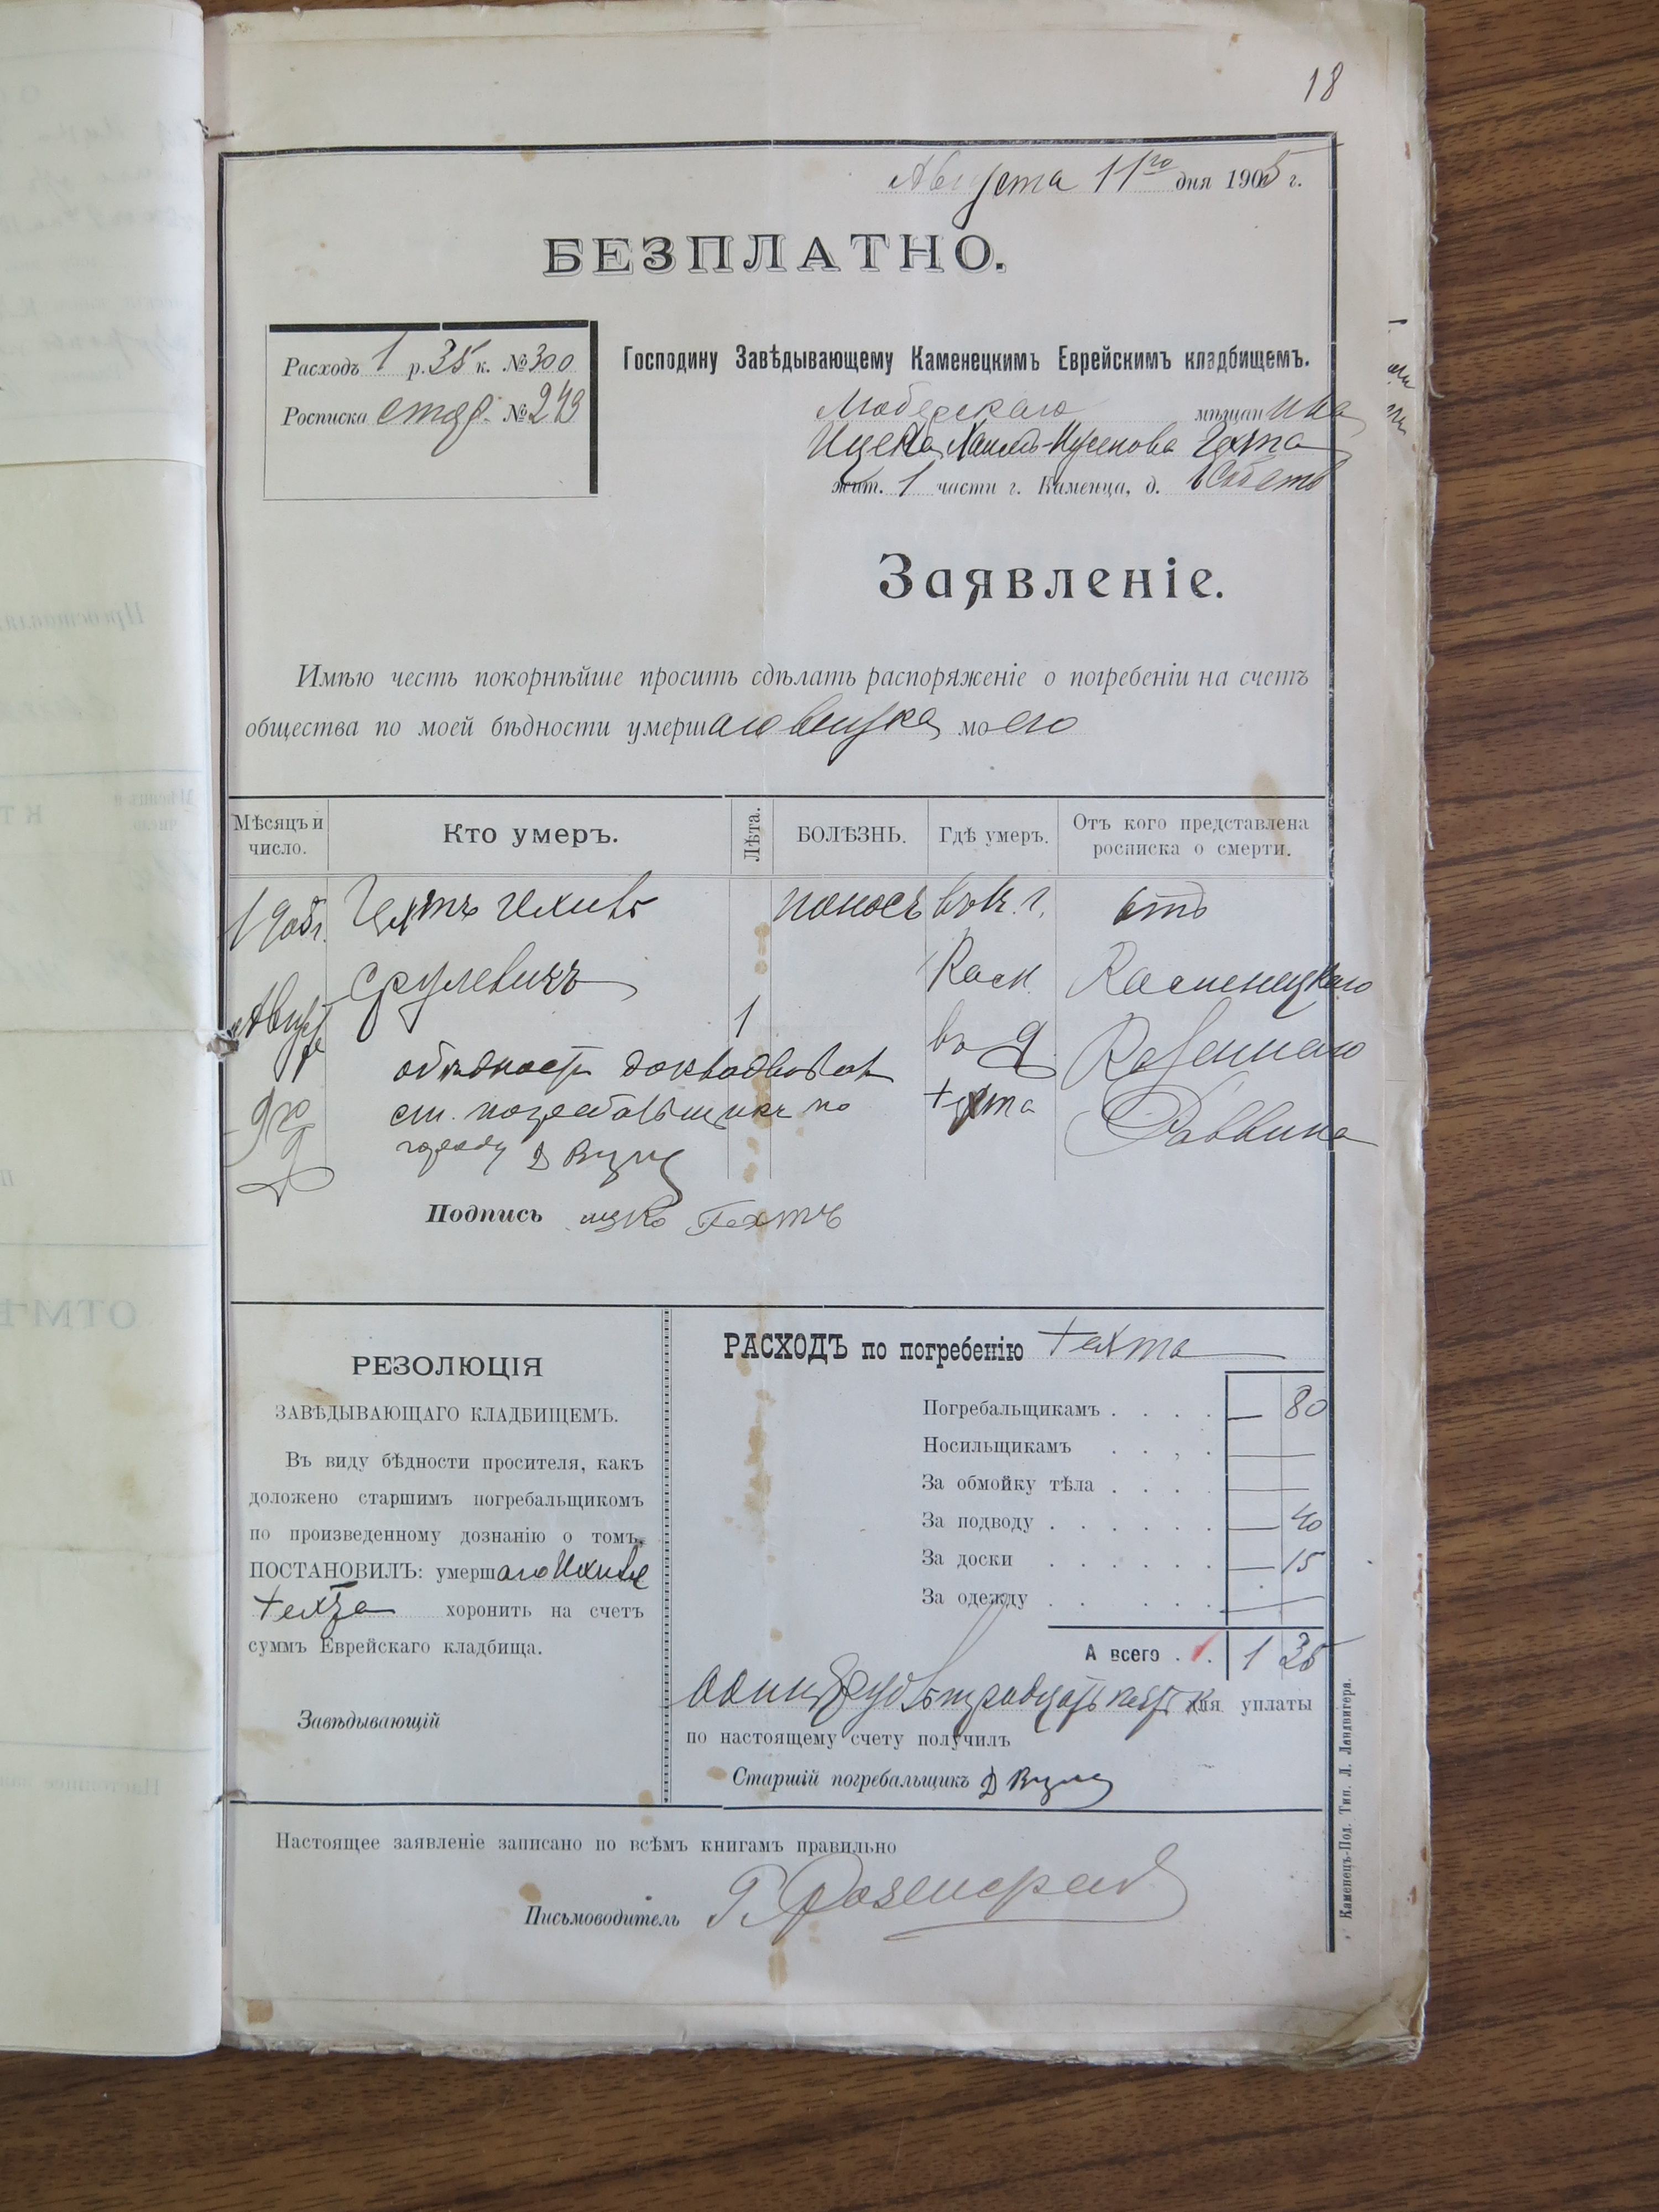 18
Августа 11го дня 1905 г.
БЕЗПЛАТНО.
Расходъ 1 р. 35 к. № 300
Росписка № 243
Господину Завѣдывающему Каменецкимъ Еврейскимъ кладбищемъ.
мѣщанина
Ицека Хаимъ-Нусенова Гехта
жит. 1 части г. Каменца, д.
Заявленіе.
Имѣю честь покорнѣйше просить сдѣлать распоряженіе о погребеніи на счетъ
общества по моей бѣдности умершаго внука моего
Мѣсяцъ и число.
Кто умеръ.
Лѣта.
БОЛѢЗНЬ.
Гдѣ умеръ.
Отъ кого представлена росписка о смерти.
1905г. Гехтъ Ихивъ поносъ въ К. г. отъ
Срулевичъ Кам. Каменецкаго
Август 1 въ д. Казеннаго
о бѣдности докладывалъ Гехта Раввина
ст. погребальщикъ по
городу Д
Подпись ицко Гехтъ
РЕЗОЛЮЦІЯ
ЗАВѢДЫВАЮЩАГО КЛАДБИЩЕМЪ.
Въ виду бѣдности просителя, какъ
доложено старшимъ погребальщикомъ
по произведенному дознанію о томъ,
ПОСТАНОВИЛЪ: умершаго Ихива
Гехта хоронить на счетъ
суммъ Еврейскаго кладбища.
Завѣдывающій
РАСХОДЪ по погребенію Гехта
Погребальщикамъ . . . . — 80
Носильщикамъ . . . . —
За обмойку тѣла . . . . —
За подводу . . . . . . — 40
За доски . . . . . . — 15
За одежду . . . . . —
А всего . . 1 35
Одинъ рубль тридцать пять к для уплаты
по настоящему счету получилъ
Старшій погребальщикъ Д
Настоящее заявленіе записано по всѣмъ книгамъ правильно
Письмоводитель Г. Розенградъ
Каменецъ-Под. Тип. Л. Ландвигера.